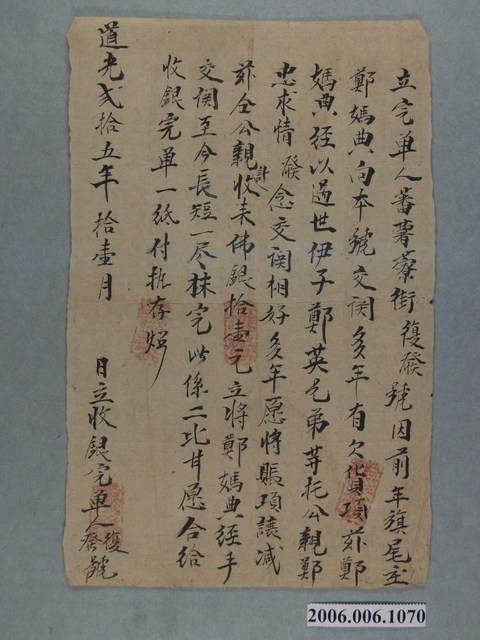 立完單人蕃薯藔街復發號因前年旗尾庄
鄭媽典向本號交関多年有欠貨項茲鄭
媽典經以過世伊子鄭英兄弟等托公親鄭
忠求情發念交関相好多年愿將賬項讓减
茲仝公親收計來佛銀拾壹元立將鄭媽典經手
交関至今長短一尽抹完此係二比甘愿合給
收銀完單一紙付执存炤
道光貳拾五年拾壹月 日立收銀完單人復發號
2006.006.1070